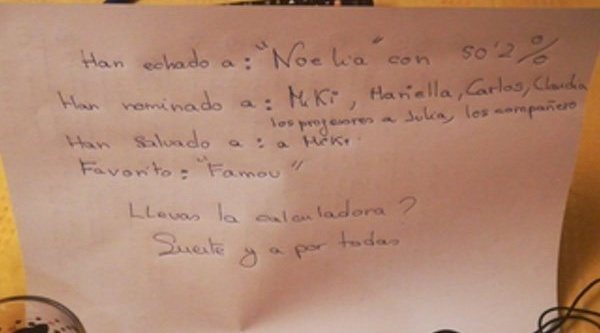 Han echado a: "Noelia" con 50'2%
Han nominado a: Miki, Mariella, Carlos, Claudia
los profesores a Julia, los compañero
Han salvado a: a Miki.
Favorito: "Famou"
Llevas la calculadora?
Suerte y a por todas